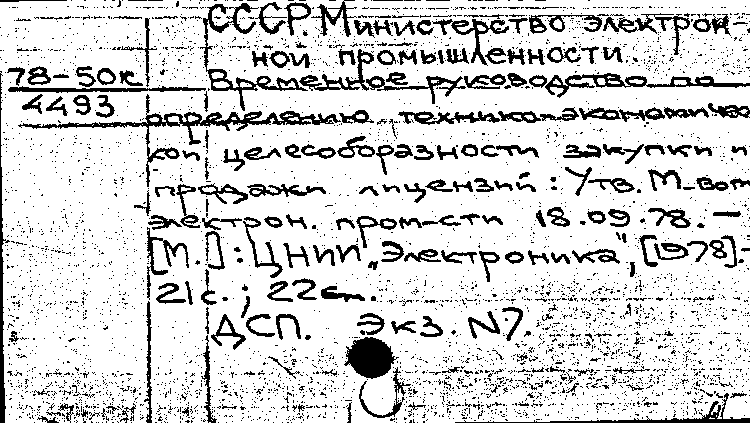 СССР. Министерство электрон-
ной промышленности.
78-50к
4493
Временное руководство по
определению технико-экономичес
кой целесообразности закупки и
продажи лицензий: Утв. М-вом
электрон. пром-сти 18.09.78. —
[М.]: ЦНИИ „Электроника", [1978].-
21 с.; 22 см.
ДСП. Экз. N7.